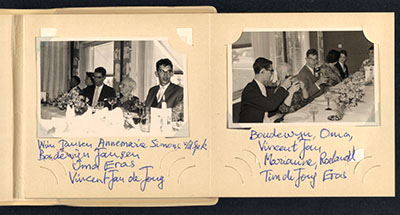 Wim Jansen, Annemarie Simons
Boudewyn Jansen
Oma Eras
Vincent Jan de Jong
Boudewyn, Oma,
Vincent Jan
Marianne, Roelandt
Tim de Jong Eras